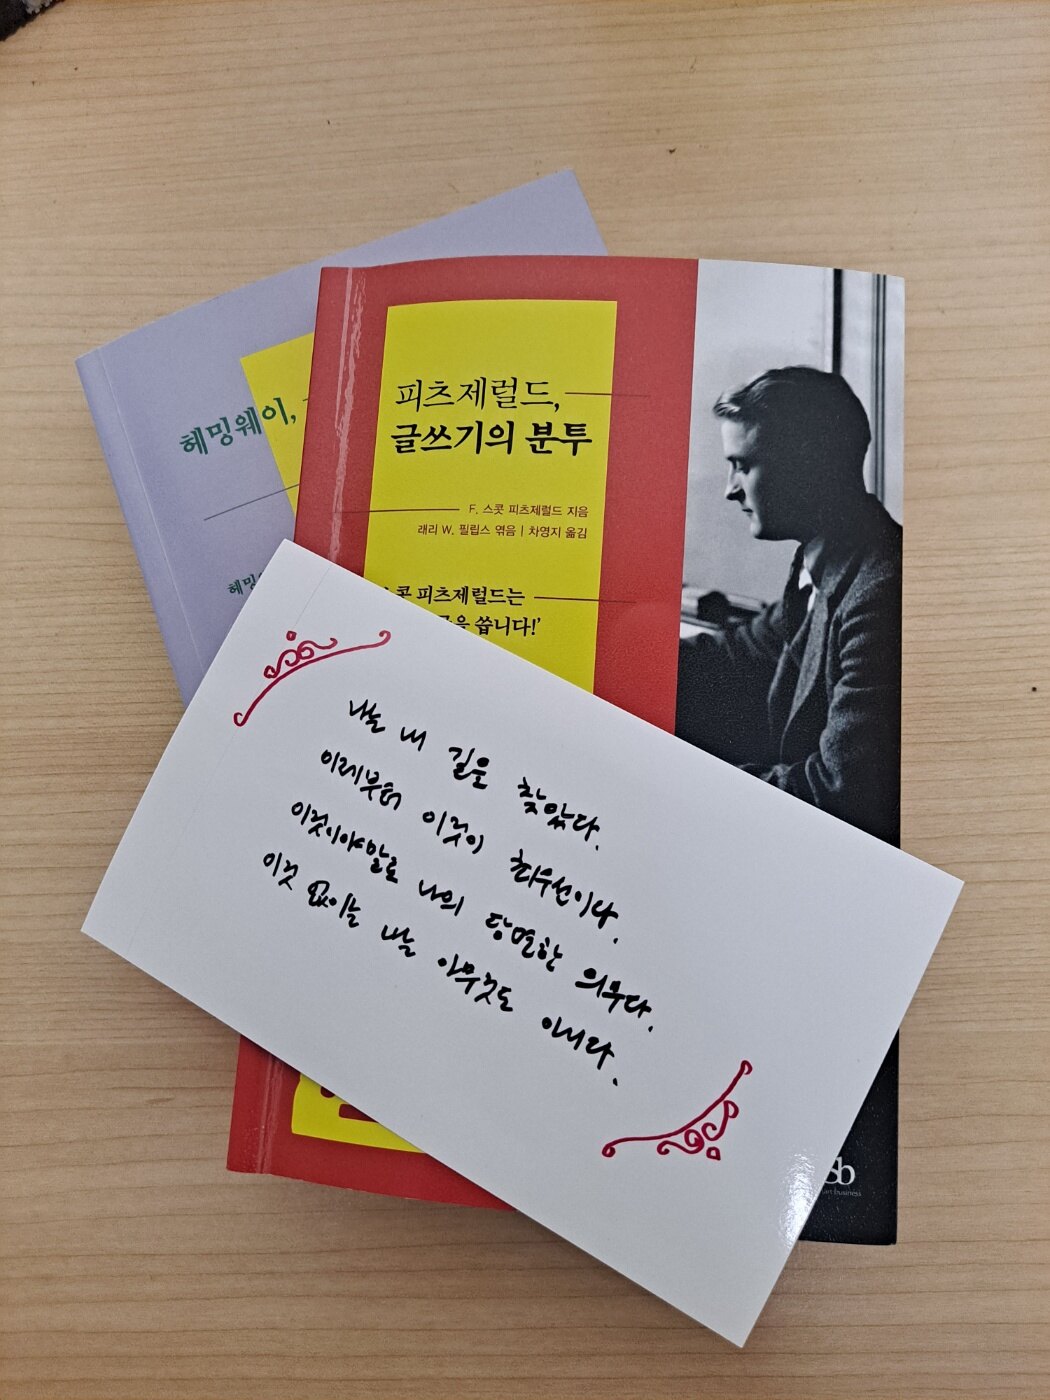 헤밍웨이,
피츠제럴드,
글쓰기의 분투
F. 스콧 피츠제럴드 지음
래리 W. 필립스 엮음 | 차영지 옮김
피츠제럴드는
씁니다!’
나는 내 길을 찾았다.
이제부터 이것이 최우선이다.
이것이야말로 나의 당면한 의무다.
이것 없이는 나는 아무것도 아니다.
sb
business